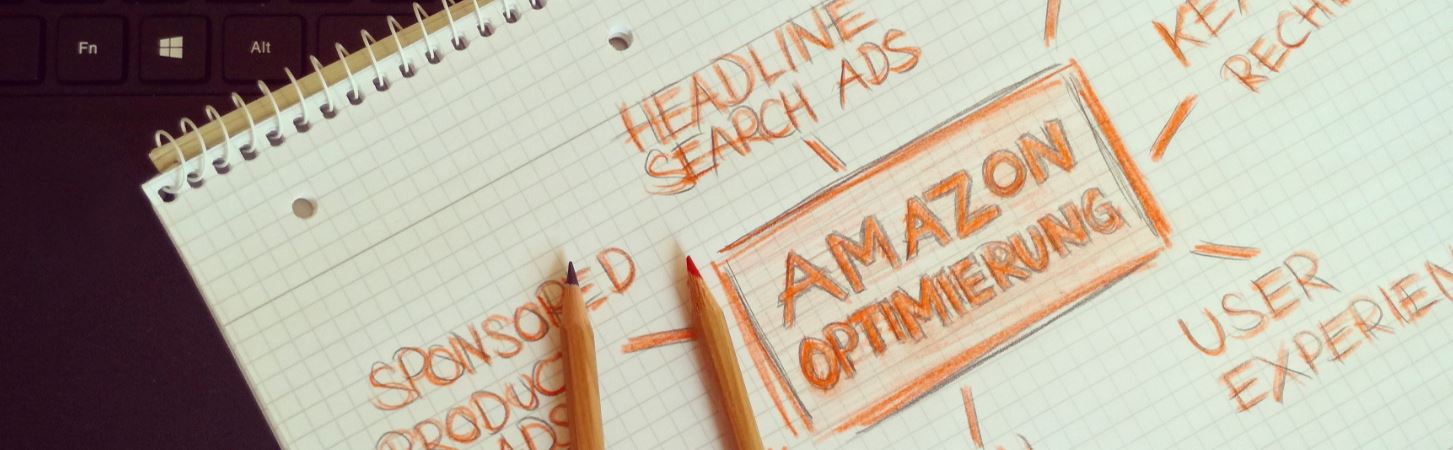 Fn
Alt
HEADLINE
SEARCH ADS
AMAZON
OPTIMIERUNG
SPONSORED
PRODUC
ADS
USER
EXPERIEN
KE
RECH